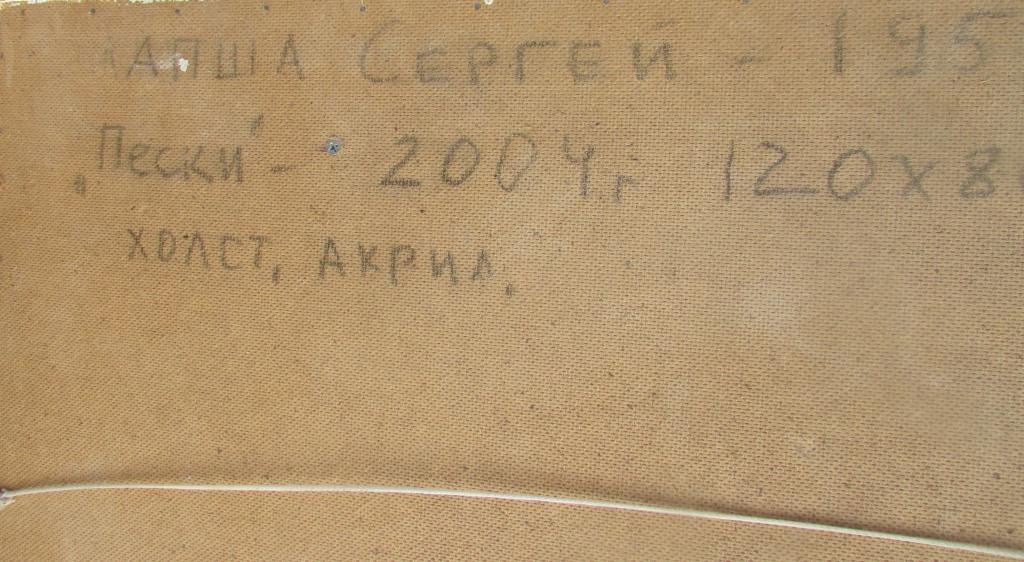 ЛАПША СЕРГЕЙ - 195
"Пески" - 2004 г. 120х8
ХОЛСТ, АКРИЛ.